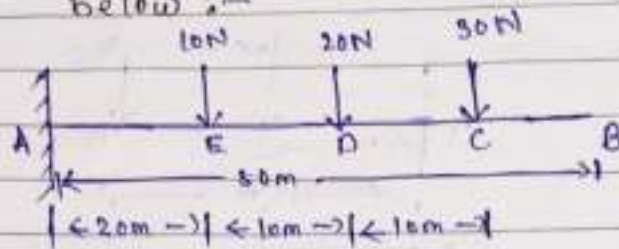 below :-
10N 20N 30N
A E D C B
50m
|<-20m->|<-10m->|<-10m->|